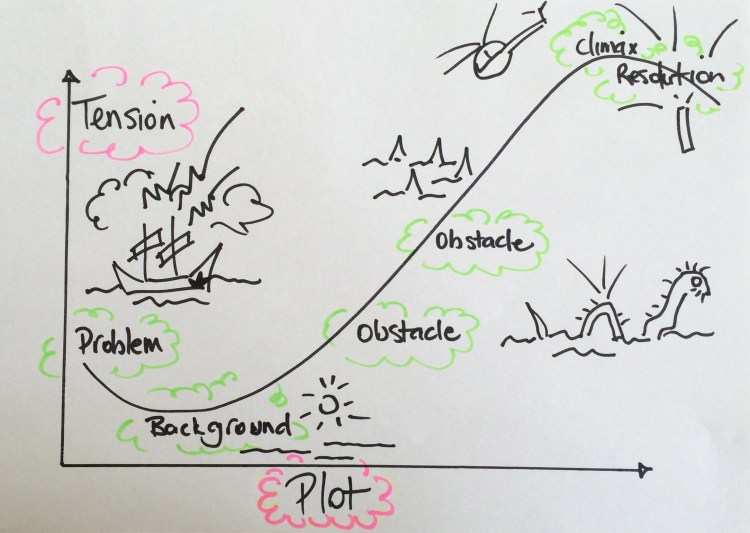 Climax
Resolution
Tension
Obstacle
Problem
Obstacle
Background
Plot